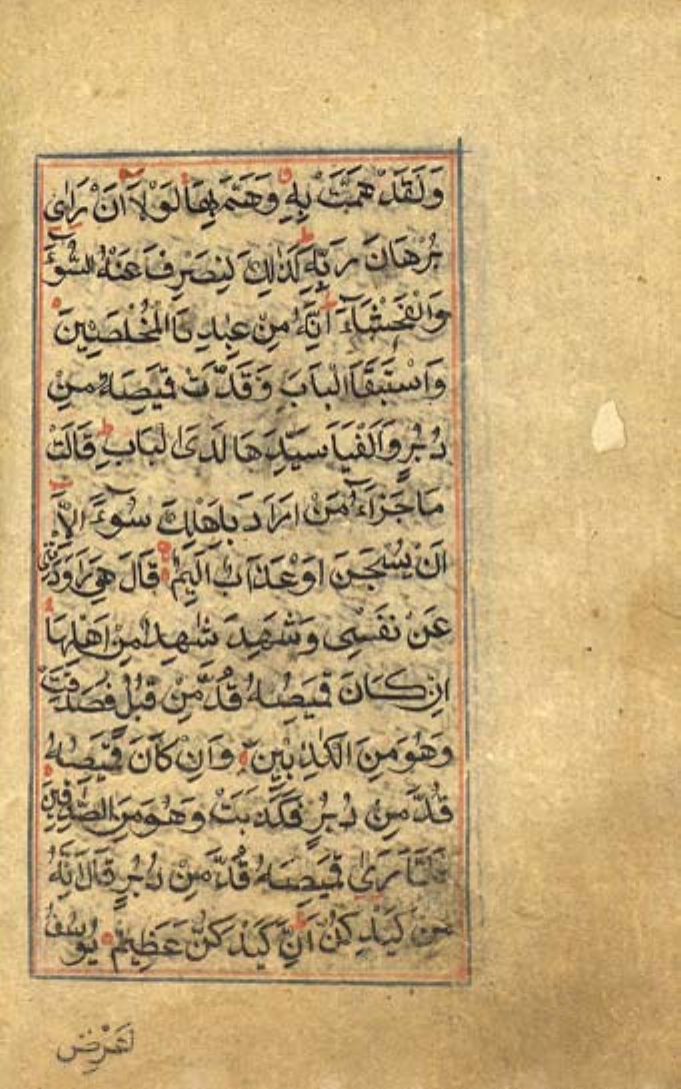 وَلَقَدْ هَمَّتْ بِهِ وَهَمَّ بِهَا لَوْلَا اَنْ رَاٰى
بُرْهَانَ رَبِّهٖ كَذٰلِكَ لِنَصْرِفَ عَنْهُ السُّوْٓءَ
وَالْفَحْشَآءَ اِنَّهُ مِنْ عِبَادِنَا الْمُخْلَصِيْنَ
وَاسْتَبَقَا الْبَابَ وَقَدَّتْ قَمِيْصَهُ مِنْ
دُبُرٍ وَاَلْفَيَا سَيِّدَهَا لَدَى الْبَابِ قَالَتْ
مَا جَزَآءُ مَنْ اَرَادَ بِاَهْلِكَ سُوْٓءً اِلَّا
اَنْ يُسْجَنَ اَوْ عَذَابٌ اَلِيْمٌ قَالَ هِيَ رَاوَدَتْنِيْ
عَنْ نَفْسِيْ وَشَهِدَ شَاهِدٌ مِنْ اَهْلِهَا
اِنْ كَانَ قَمِيْصُهُ قُدَّ مِنْ قُبُلٍ فَصَدَقَتْ
وَهُوَ مِنَ الْكٰذِبِيْنَ وَاِنْ كَانَ قَمِيْصُهُ
قُدَّ مِنْ دُبُرٍ فَكَذَبَتْ وَهُوَ مِنَ الصّٰدِقِيْنَ
فَلَمَّا رَاٰى قَمِيْصَهُ قُدَّ مِنْ دُبُرٍ قَالَ اِنَّهُ
مِنْ كَيْدِكُنَّ اِنَّ كَيْدَكُنَّ عَظِيْمٌ يُوْسُفُ
اَعْرِضْ